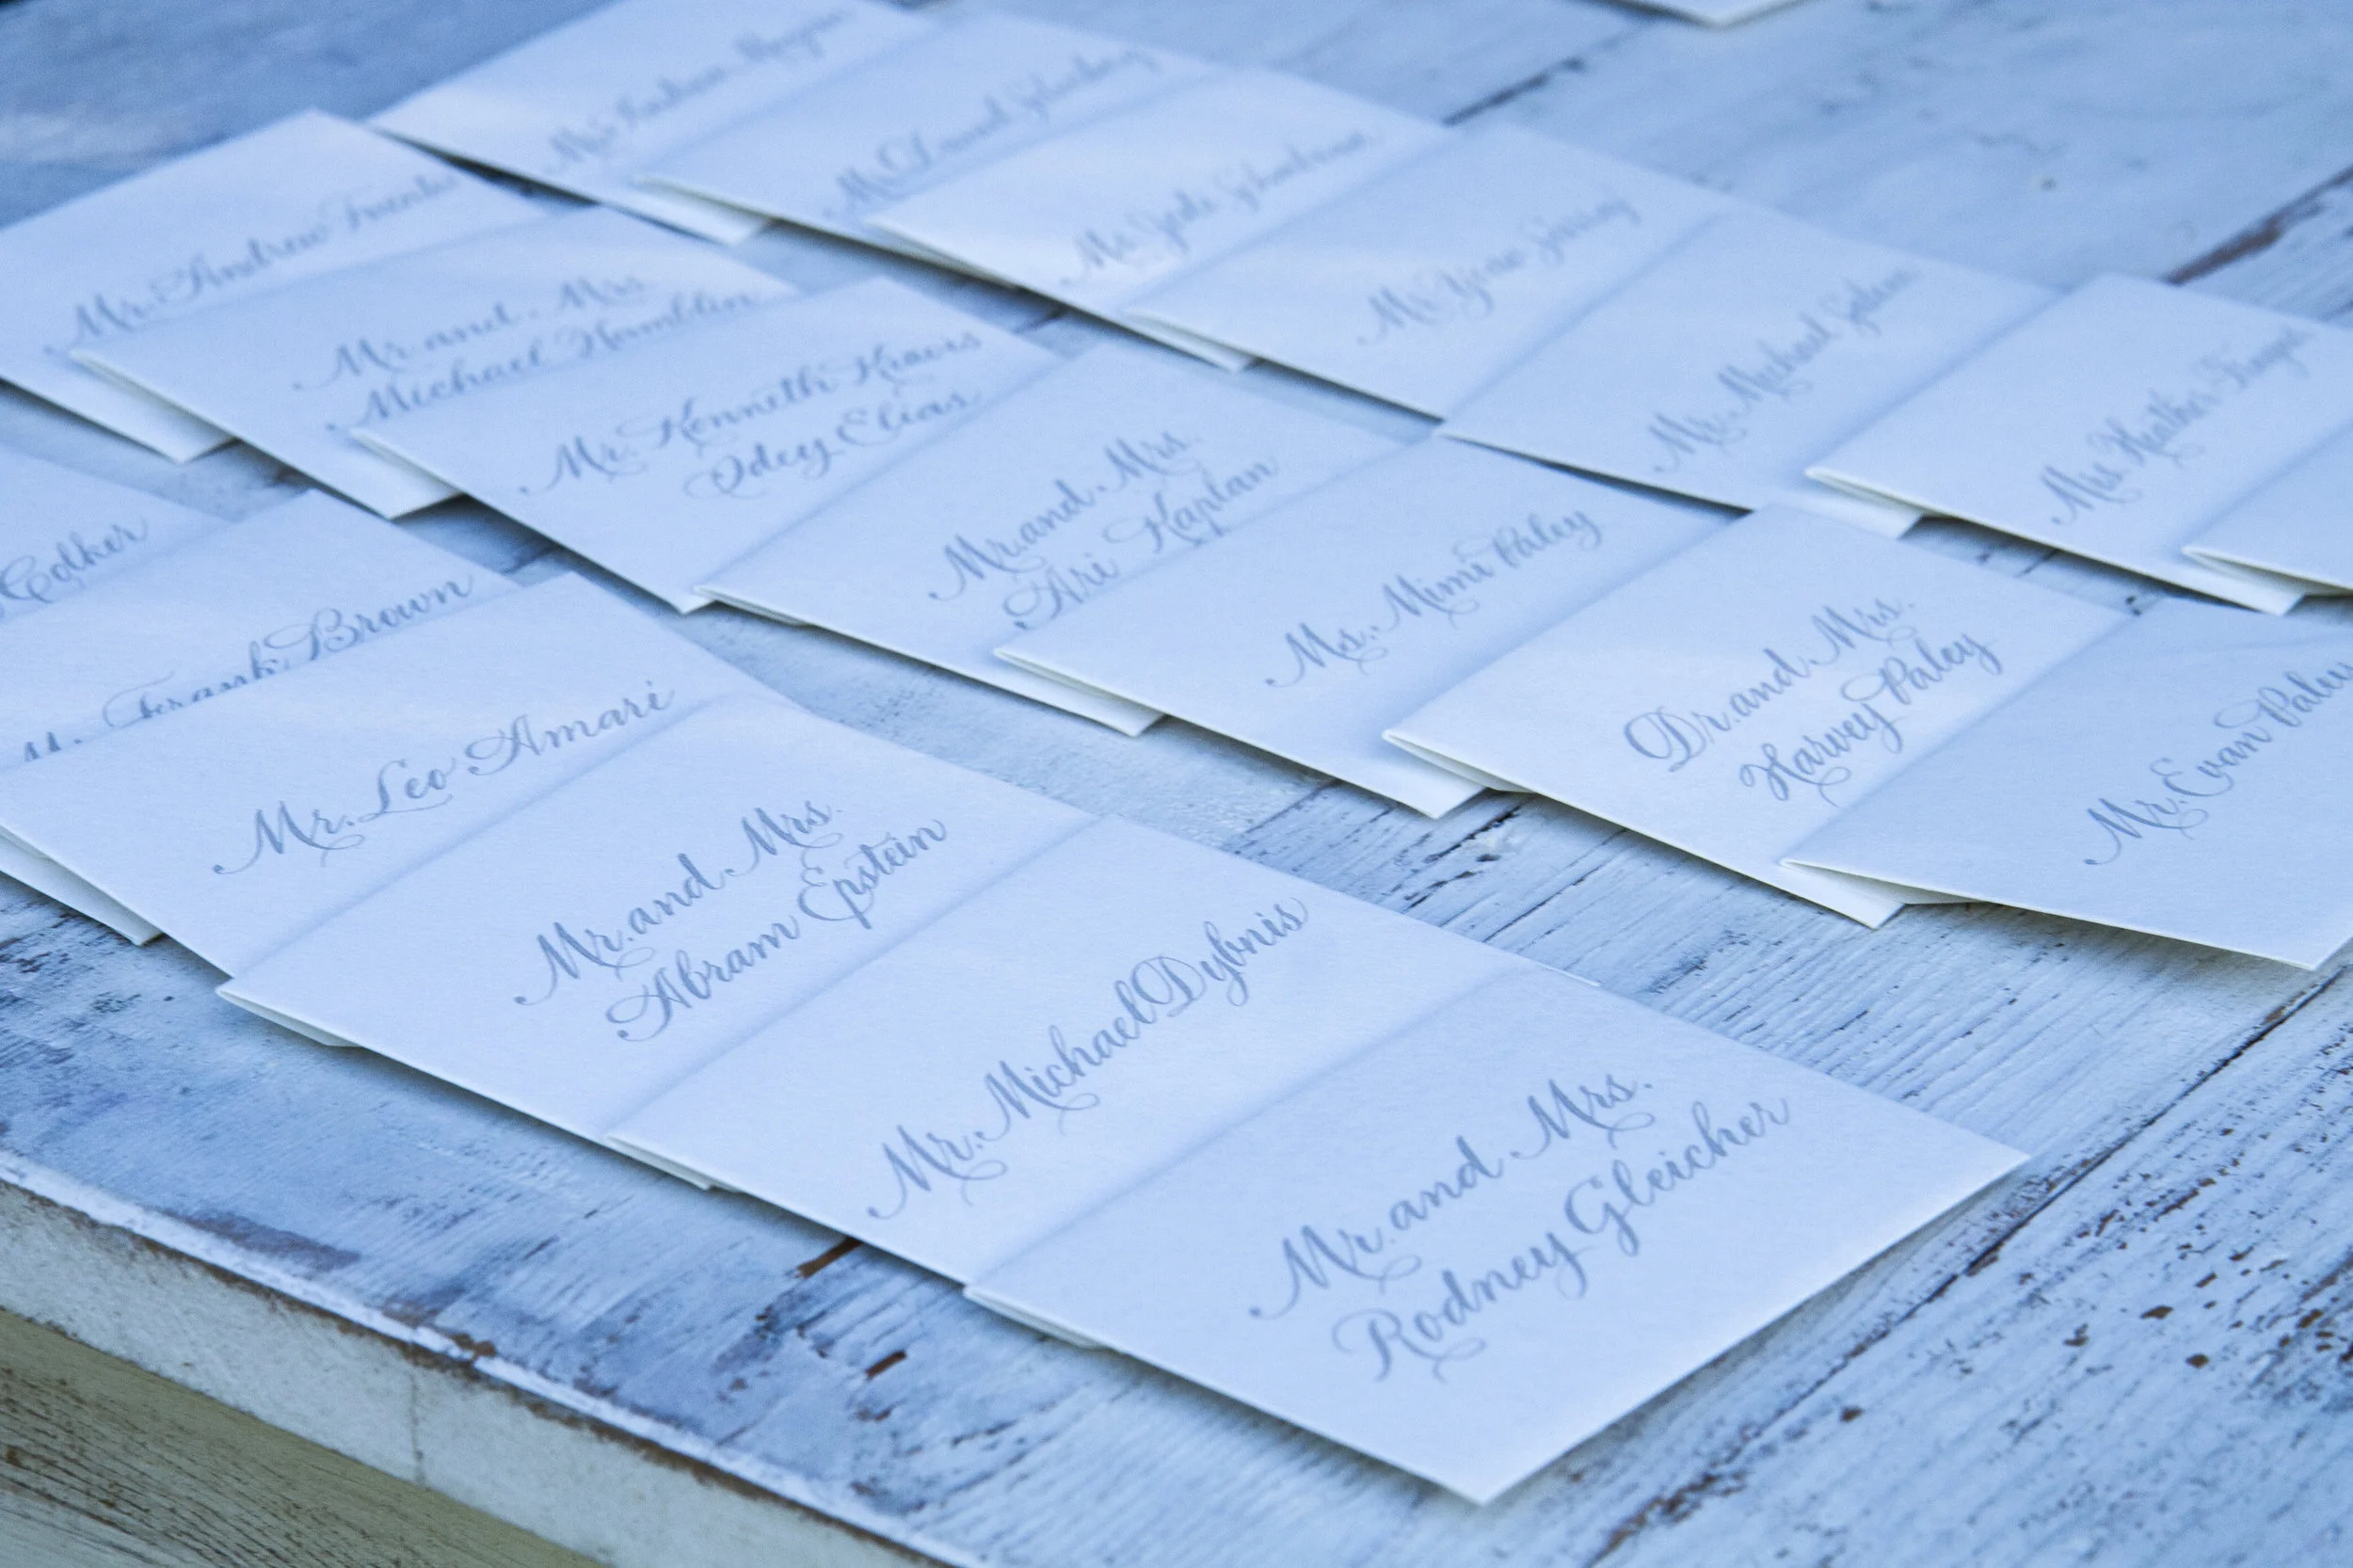 Mr. Andrew Franks
Mr. and Mrs.
Michael Hamblin
Mr. Kenneth Kravis
Odey Elias
Mr. and Mrs.
Ari Kaplan
Ms. Mimi Paley
Dr. and Mrs.
Harvey Paley
Mr. Evan Paley
Mr. Michael
Mrs. Heather
Colker
Mr. Frank Brown
Mr. Leo Amari
Mr. and Mrs.
Abram Epstein
Mr. Michael Dybnis
Mr. and Mrs.
Rodney Gleicher